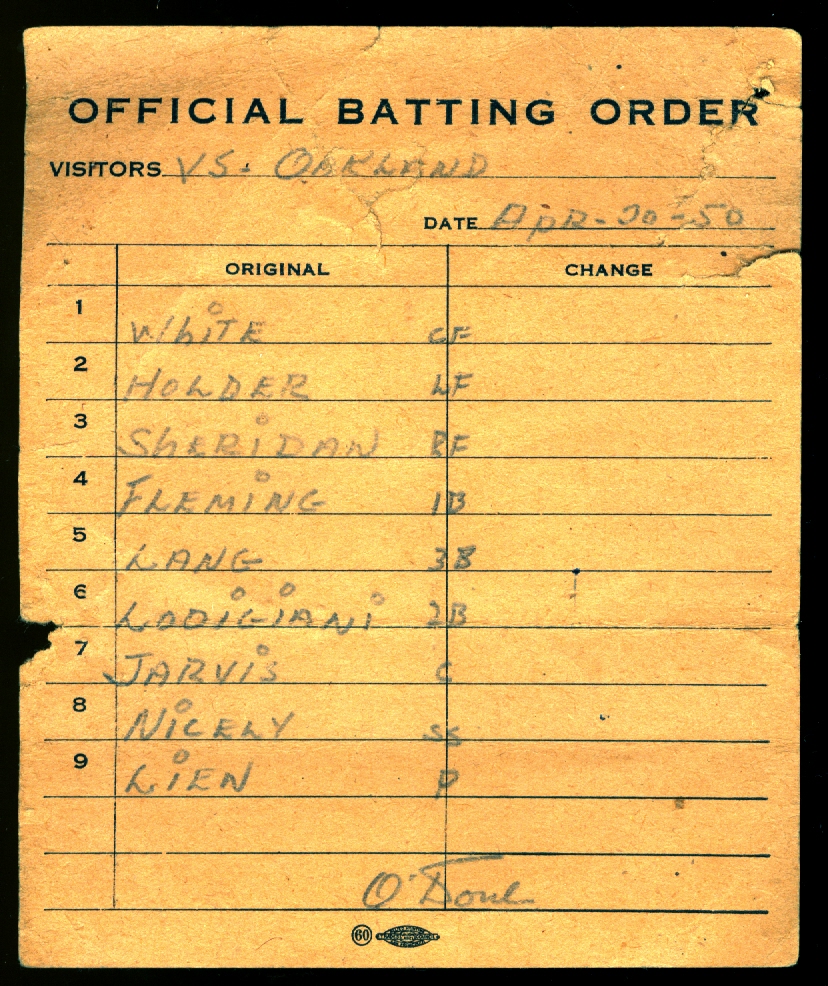 OFFICIAL BATTING ORDER
VISITORS VS. OAKLAND
DATE APR-30-50
ORIGINAL CHANGE
1 WhiTE CF
2 HOLDER LF
3 ShERiDAN RF
4 FLEMiNG 1B
5 LANG 3B
6 LODiGiANi 2B
7 JARViS C
8 NiCELY SS
9 LiEN P
O'Doul
60